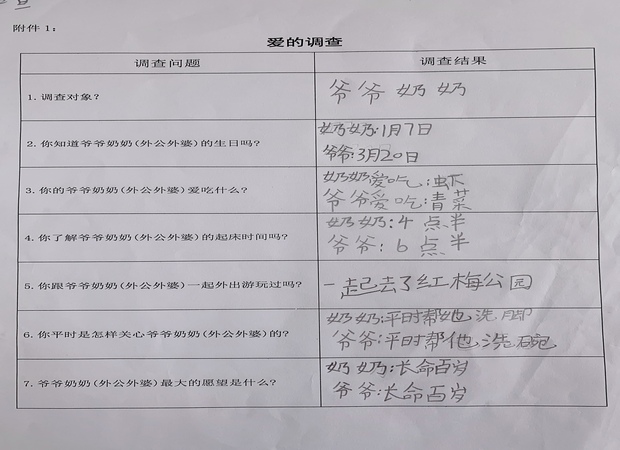 附件1：
爱的调查
调查问题 调查结果
1. 调查对象？ 爷爷 奶奶
2. 你知道爷爷奶奶(外公外婆)的生日吗？ 奶奶：1月7日
爷爷：3月20日
3. 你的爷爷奶奶(外公外婆)爱吃什么？ 奶奶爱吃：虾
爷爷爱吃：青菜
4. 你了解爷爷奶奶(外公外婆)的起床时间吗？ 奶奶：4点半
爷爷：6点半
5. 你跟爷爷奶奶(外公外婆)一起外出游玩过吗？ 一起去了红梅公园
6. 你平时是怎样关心爷爷奶奶(外公外婆)的？ 奶奶：平时帮她洗脚
爷爷：平时帮他洗碗
7. 爷爷奶奶(外公外婆)最大的愿望是什么？ 奶奶：长命百岁
爷爷：长命百岁